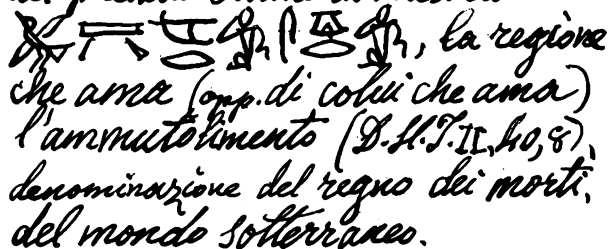 , la regione
che ama (opp. di colui che ama)
l'ammutolimento (D.H.J. II, 40, 8),
denominazione del regno dei morti,
del mondo sotterraneo.